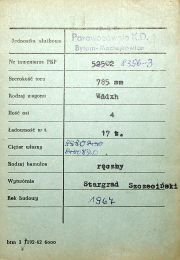 Jednostka służbowa
Parowozownia K.D.
Bytom-Maciejkowice
Nr inwentarza PKP 8356-3
Szerokość toru 785 mm
Rodzaj wagonu Wddxh
Ilość osi 4
Ładowność w t. 17 t.
Ciężar własny
Rodzaj hamulca ręczny
Wytwórnia Stargard Szczeciński
Rok budowy 1964